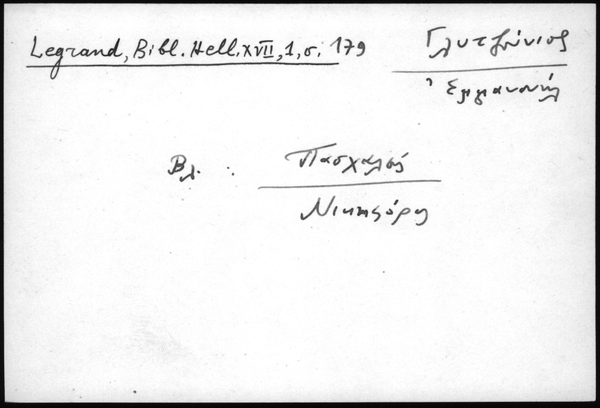 Legrand, Bibl. Hell. XVII, 1, σ. 179
Γλυτζούνιος
Ἐμμανουήλ
Βλ. :
Πασχαλεύς
Νικηφόρος